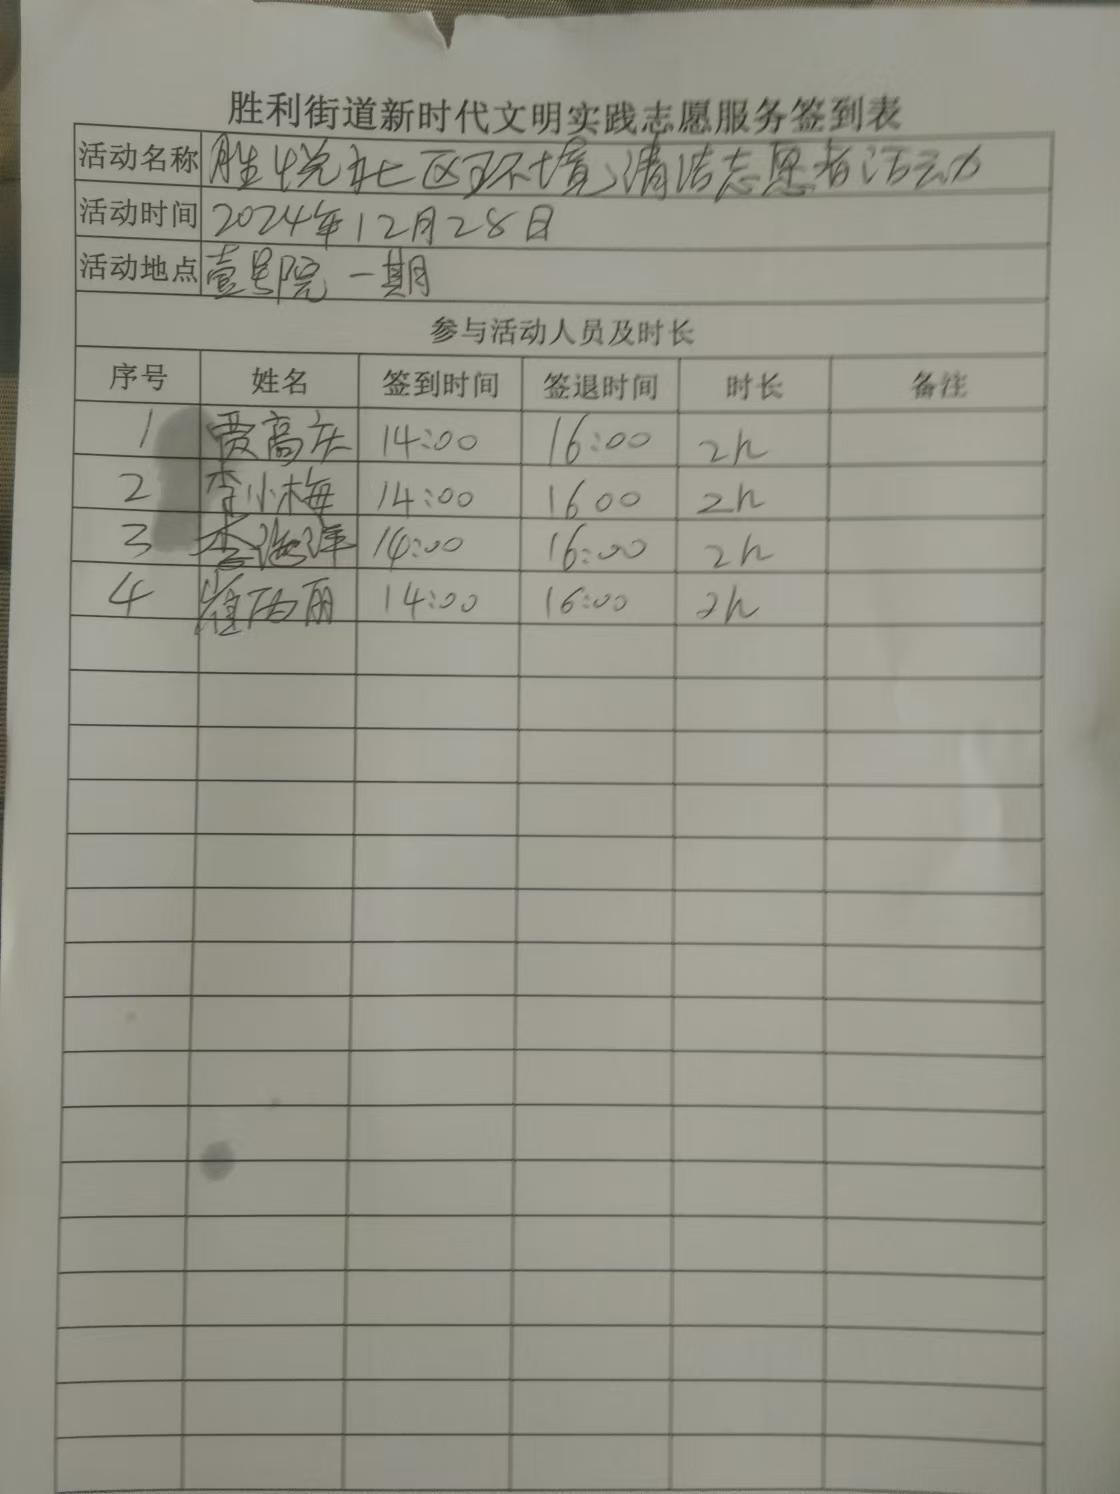 胜利街道新时代文明实践志愿服务签到表
活动名称 胜悦社区环境清洁志愿者活动
活动时间 2024年12月28日
活动地点 壹号院一期
参与活动人员及时长
序号 姓名 签到时间 签退时间 时长 备注
1 贾高庆 14:00 16:00 2h
2 李小梅 14:00 1600 2h
3 李 14:00 16:00 2h
4 崔丽 14:00 16:00 2h